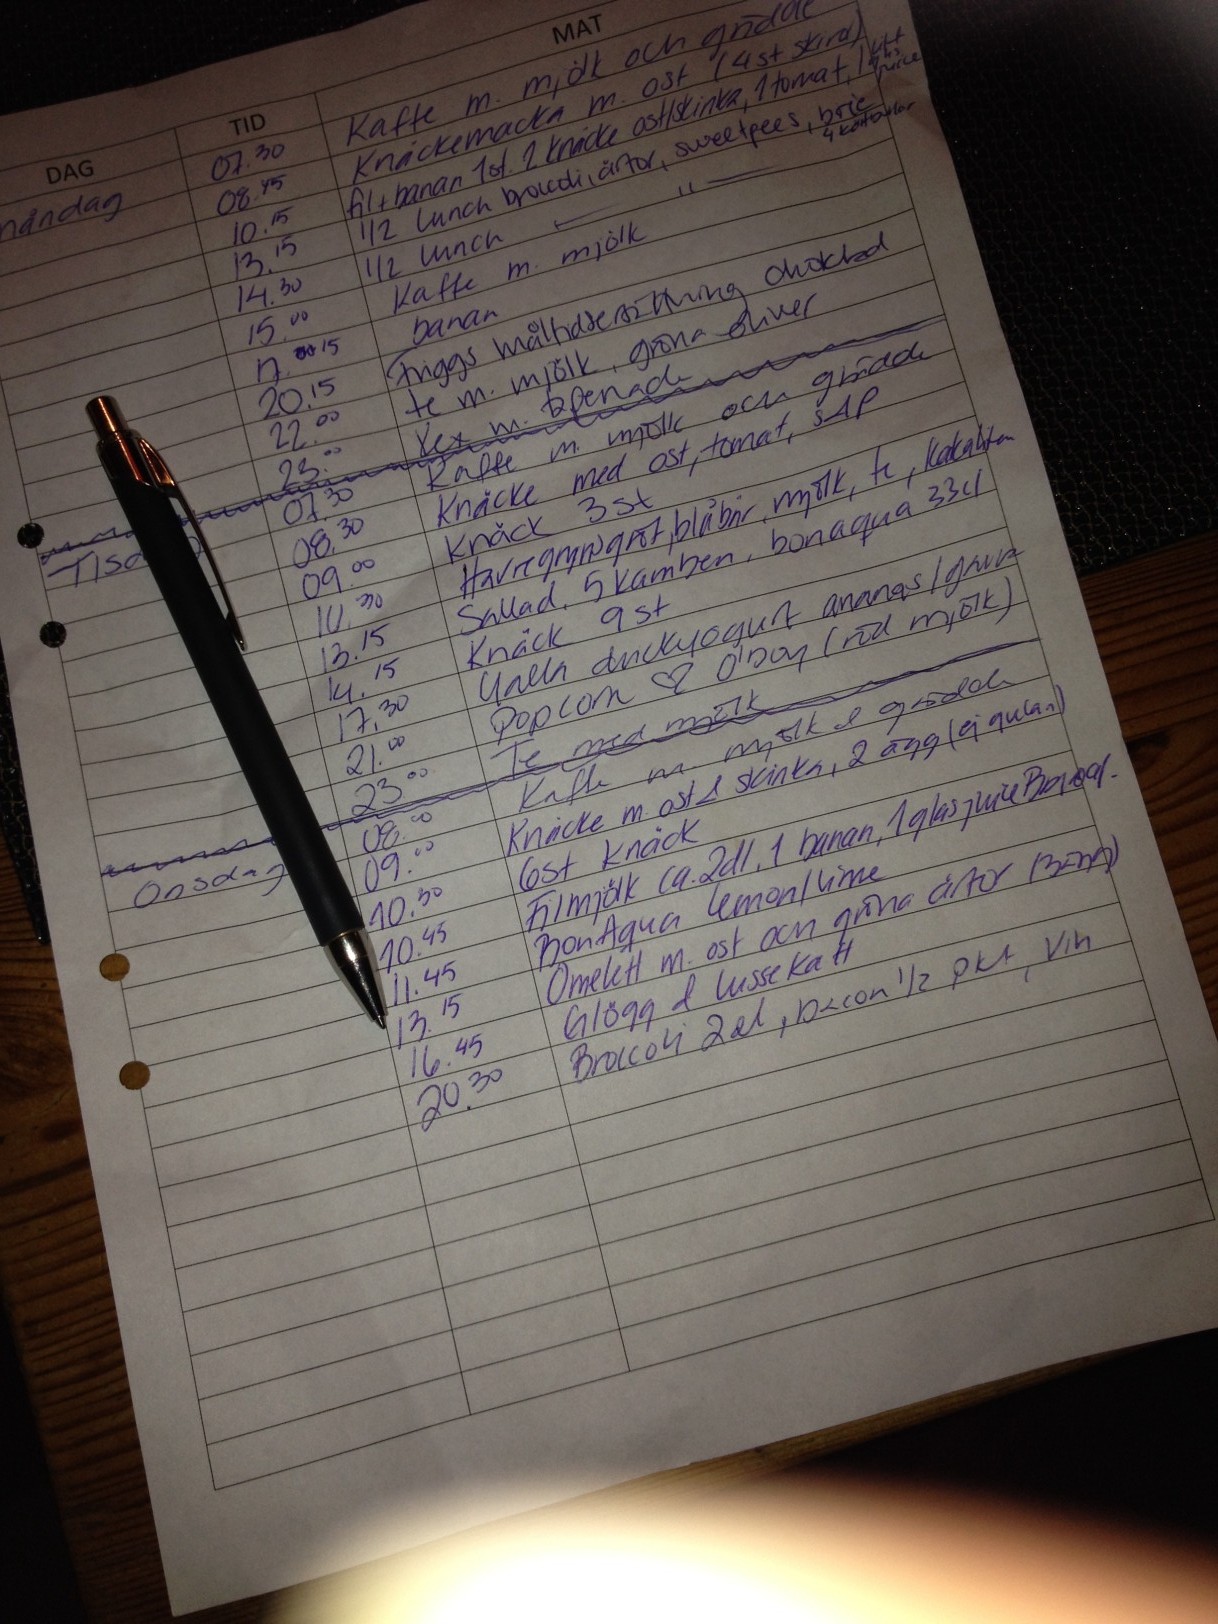 DAG TID MAT
måndag 07.30 Kaffe m. mjölk och grädde
08.45 Knäckemacka m. ost (4st skivor)
10.15 fil+banan 1st. 2 knäcke ost/skinka, 1 tomat, 1 glas juice
13.15 1/2 lunch broccoli, ärtor, sweetpees, brie
14.30 1/2 lunch — " —
15.00 Kaffe m. mjölk
17.15 banan
20.15 Friggs måltidsersättning choklad
22.00 te m. mjölk, gröna oliver
23.00 Kex m. tapenade
Tisdag 07.30 Kaffe m. mjölk och grädde
08.30 Knäcke med ost, tomat, SAP
09.00 Knäck 3 st
10.30 Havregrynsgröt, blåbär, mjölk, te,
13.15 Sallad, 5 kamben, bonaqua 33cl
14.15 Knäck 9 st
17.30 Yalla drickyogurt ananas/
21.00 Popcorn O'boy (röd mjölk)
23.00 Te med mjölk
Onsdag 08.00 Kaffe m. mjölk & grädde
09.00 Knäcke m. ost & skinka, 2 ägg (ej gulan)
10.30 6st knäck
10.45 Filmjölk ca. 2dl, 1 banan, 1 glas juice
11.45 BonAqua lemon/lime
13.15 Omelett m. ost och gröna ärtor
16.45 Glögg & lussekatt
20.30 Broccoli 2dl, bacon 1/2 pkt, vin